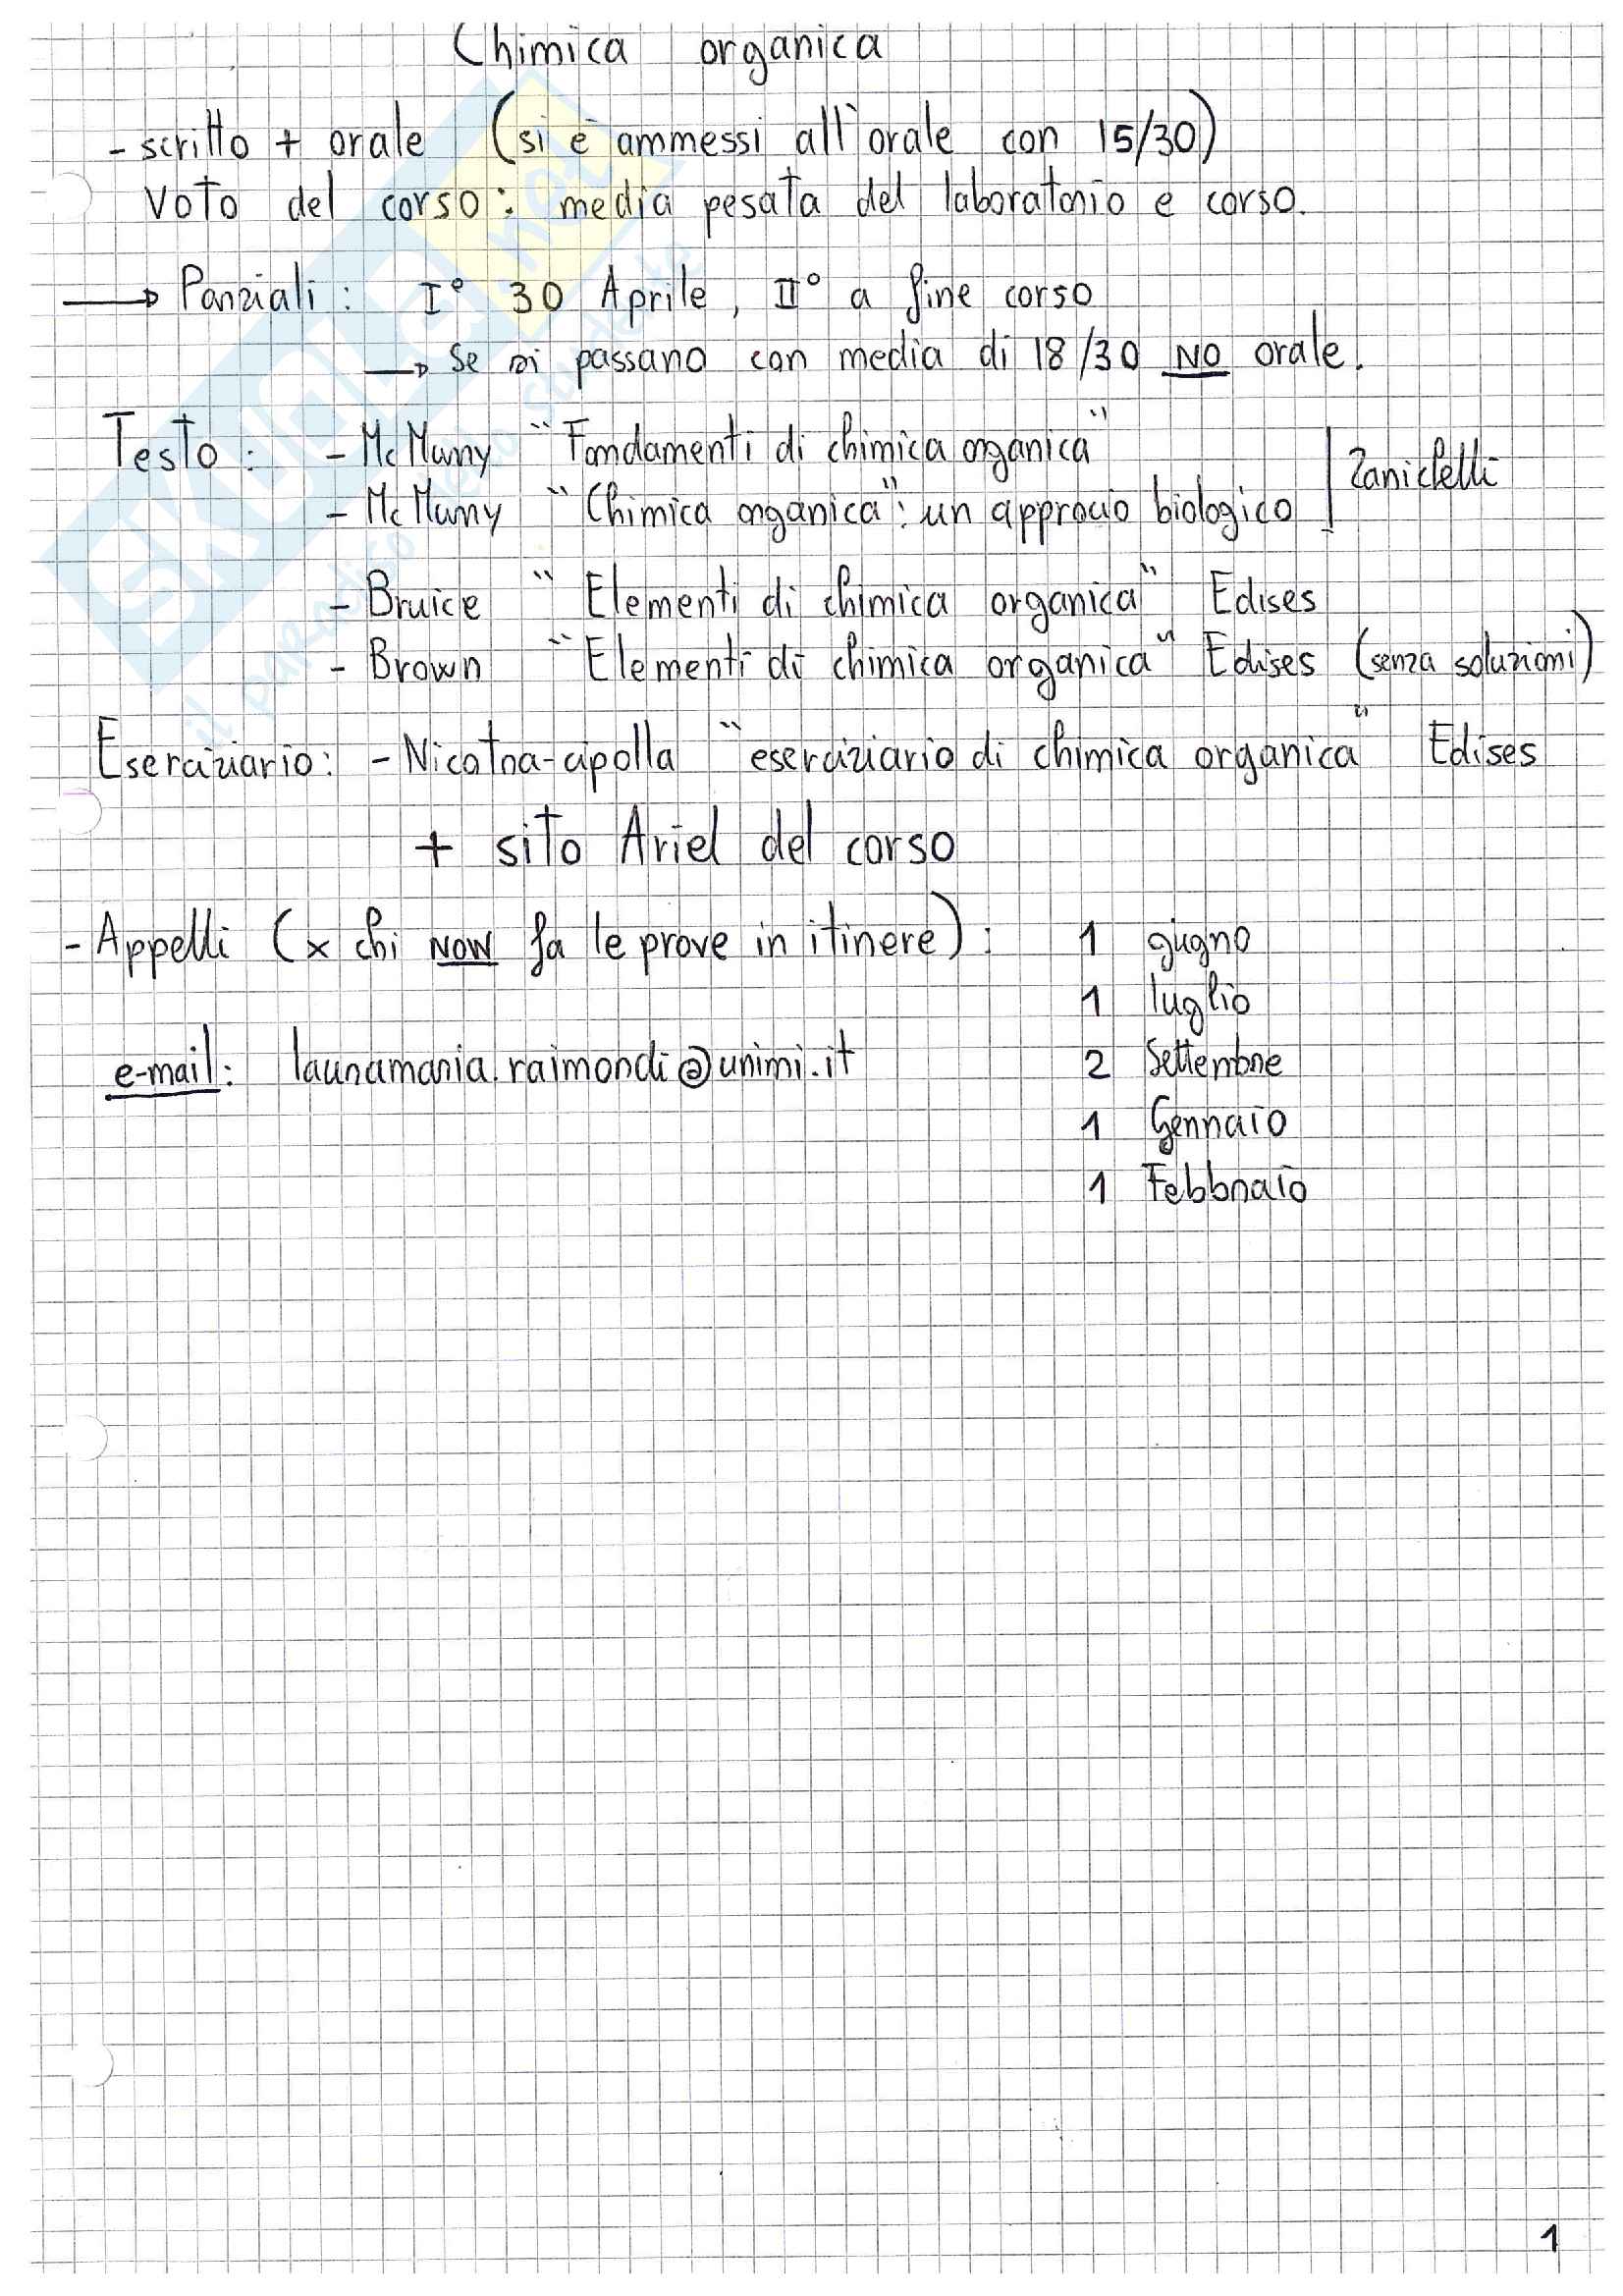 Chimica organica
- scritto + orale (si è ammessi all'orale con 15/30)
Voto del corso: media pesata del laboratorio e corso.
→ Parziali: I° 30 Aprile, II° a fine corso
→ Se si passano con media di 18/30 NO orale.
Testo: - Mc Murry "Fondamenti di chimica organica"
- Mc Murry "Chimica organica": un approccio biologico
Zanichelli
- Bruice "Elementi di chimica organica" Edises
- Brown "Elementi di chimica organica" Edises (senza soluzioni)
Eserciziario: - Nicotra-cipolla "eserciziario di chimica organica" Edises
+ sito Ariel del corso
- Appelli (x chi NON fa le prove in itinere): 1 giugno
1 luglio
e-mail: lauramaria.raimondi@unimi.it 2 Settembre
1 Gennaio
1 Febbraio
1
SKUOLA.net
il paradiso dello studente